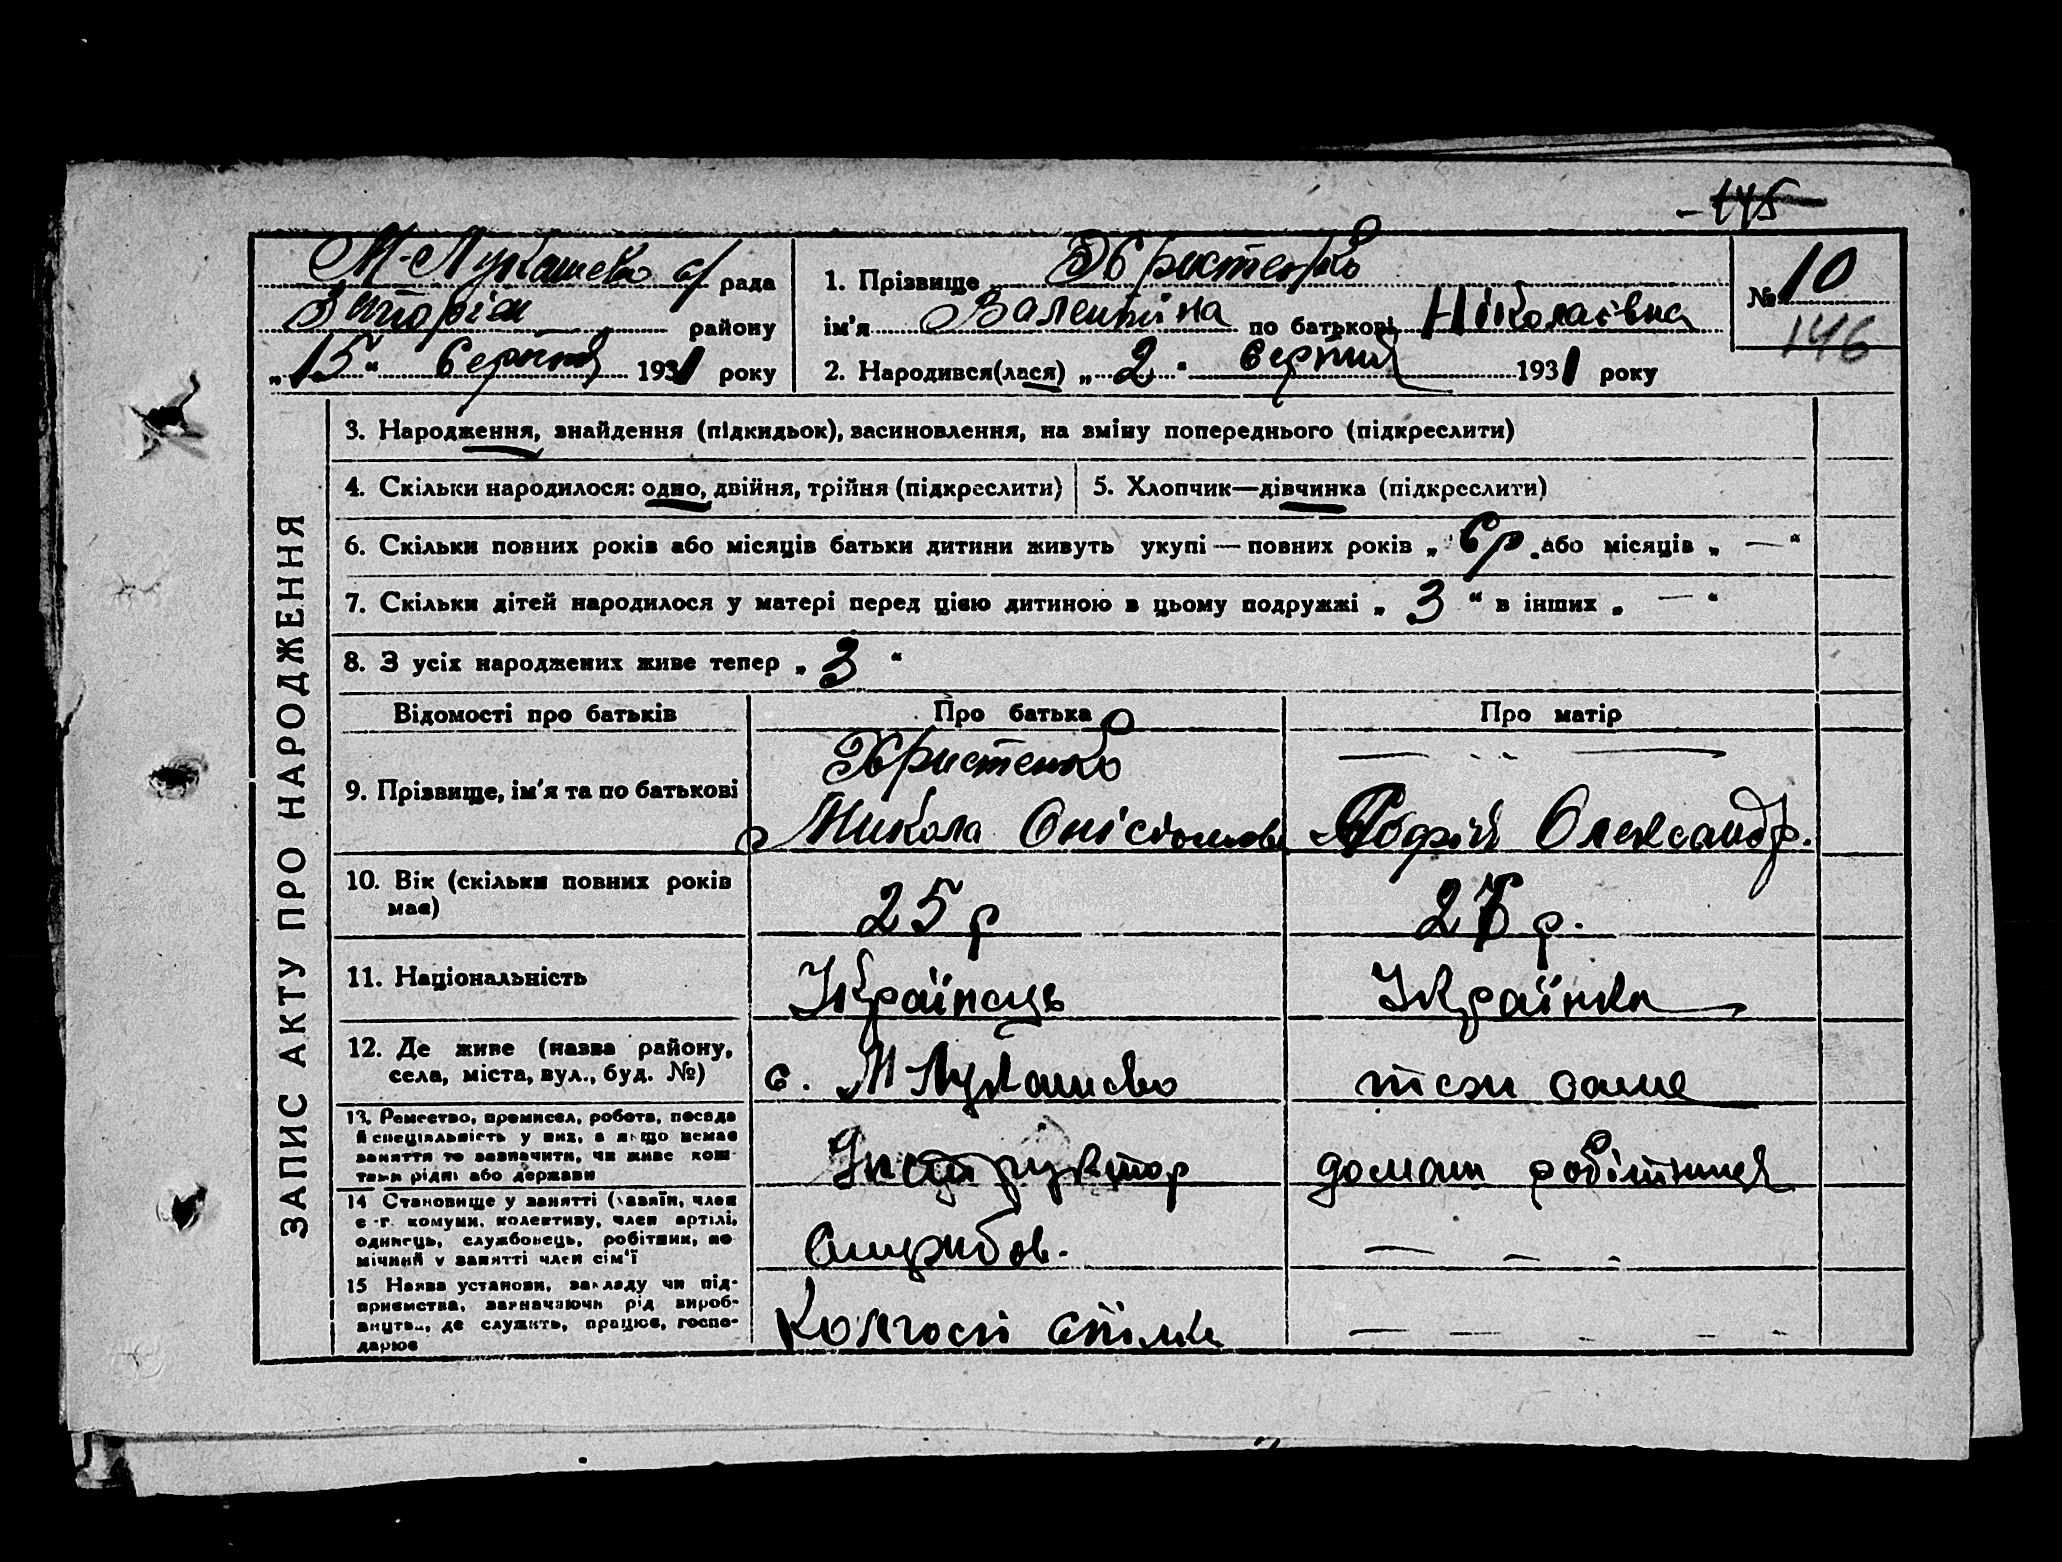 - 145
М-Лукашево с/ рада
району
„ 15 “ Серпня 1931 року
1. Прізвище Христенко
ім'я Валентіна по батькові Ніколаівна
2. Народився(лася) „ 2 “ серпня 1931 року
№ 10
146
ЗАПИС АКТУ ПРО НАРОДЖЕННЯ
3. Народження, знайдення (підкидьок), засиновлення, на зміну попереднього (підкреслити)
4. Скільки народилося: одно, двійня, трійня (підкреслити) 5. Хлопчик—дівчинка (підкреслити)
6. Скільки повних років або місяців батьки дитини живуть укупі — повних років „ 6 р. або місяців „ — “
7. Скільки дітей народилося у матері перед цією дитиною в цьому подружжі „ 3 “ в інших „ — “
8. З усіх народжених живе тепер „ 3 “
Відомості про батьків Про батька Про матір
9. Прізвище, ім'я та по батькові Христенко — „ —
Микола Софія Олександр.
10. Вік (скільки повних років
має) 25 р р.
11. Національність Українець Українка
12. Де живе (назва району,
села, міста, вул., буд. №) с. М Лукашево теж саме
13. Ремество, промисел, робота, посада
й спеціальність у них, а якщо немає
заняття то зазначити, чи живе кош-
тами рідні або держави Інструктор домаш робітниця
14 Становище у занятті (хазяїн, член
с.-г. комуни, колективу, член артілі,
одинець, службовець, робітник, по-
мічний у занятті член сім'ї — — -
15 Назва установи, закладу чи під-
приємства, зазначаючи рід вироб-
ництва, де служить, працює, госпо-
дарює Колгосп спілка — — — - -